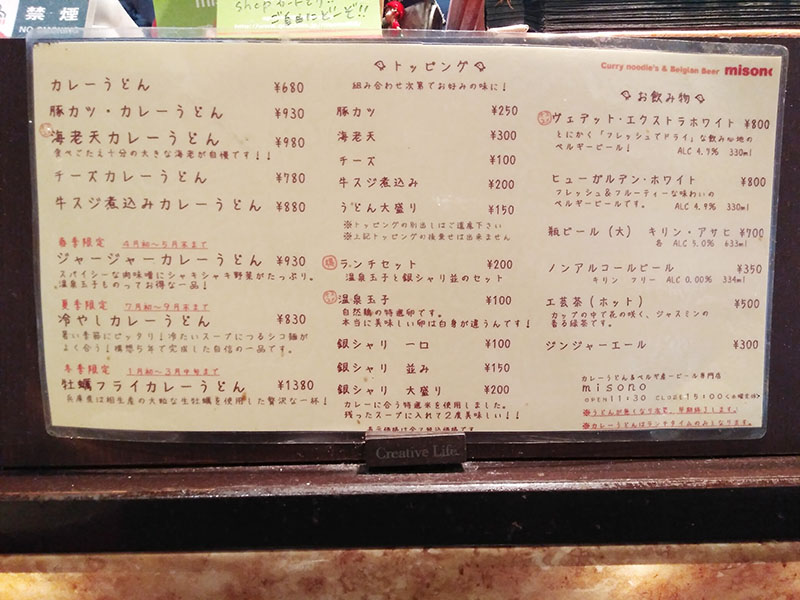 禁煙
NO SMOKING
shopカードです!!
ご自由にどーぞ!!
カレーうどん ¥680
豚カツ・カレーうどん ¥930
海老天カレーうどん ¥980
食べごたえ十分の大きな海老が自慢です!!
チーズカレーうどん ¥780
牛スジ煮込みカレーうどん ¥880
春季限定 4月初〜5月末まで
ジャージャーカレーうどん ¥930
スパイシーな肉味噌にシャキシャキ野菜がたっぷり。
温泉玉子ものってお得な一品!
夏季限定 7月初〜9月末まで
冷やしカレーうどん ¥830
暑い季節にピッタリ!冷たいスープにつるシコ麺が
よく合う!構想5年で完成した自信の一品です。
冬季限定 1月初〜3月中旬まで
牡蠣フライカレーうどん ¥1380
兵庫県は相生産の大粒な生牡蠣を使用した贅沢な一杯!
トッピング
組み合わせ次第でお好みの味に!
豚カツ ¥250
海老天 ¥300
チーズ ¥100
牛スジ煮込み ¥200
うどん大盛り ¥150
※トッピングの別出しはご遠慮下さい
※上記トッピングの後乗せは出来ません
ランチセット ¥200
温泉玉子と銀シャリ並のセット
温泉玉子 ¥100
自然鶏の特選卵です。
本当に美味しい卵は白身が違うんです!
銀シャリ 一口 ¥100
銀シャリ 並み ¥150
銀シャリ 大盛り ¥200
カレーに合う特選米を使用しました。
残ったスープに入れて2度美味しい!!
表示価格は全て税込価格です
Curry noodle's & Belgian Beer misono
お飲み物
ヴェデット・エクストラホワイト ¥800
とにかく「フレッシュでドライ」な飲み心地の
ベルギービール! ALC 4.7% 330ml
ヒューガルデン・ホワイト ¥800
フレッシュ&フルーティーな味わいの
ベルギービールです。 ALC 4.9% 330ml
瓶ビール(大) キリン・アサヒ ¥700
各 ALC 5.0% 633ml
ノンアルコールビール ¥350
キリン フリー ALC 0.00% 334ml
工芸茶(ホット) ¥500
カップの中で花の咲く、ジャスミンの
香る緑茶です。
ジンジャーエール ¥300
カレーうどん&ベルギー産ービール専門店
misono
OPEN11:30 CLOSE15:00
※うどんが無くなり次第、早期終了します。
※カレーうどんはランチタイムのみとなります。
Creative Life.